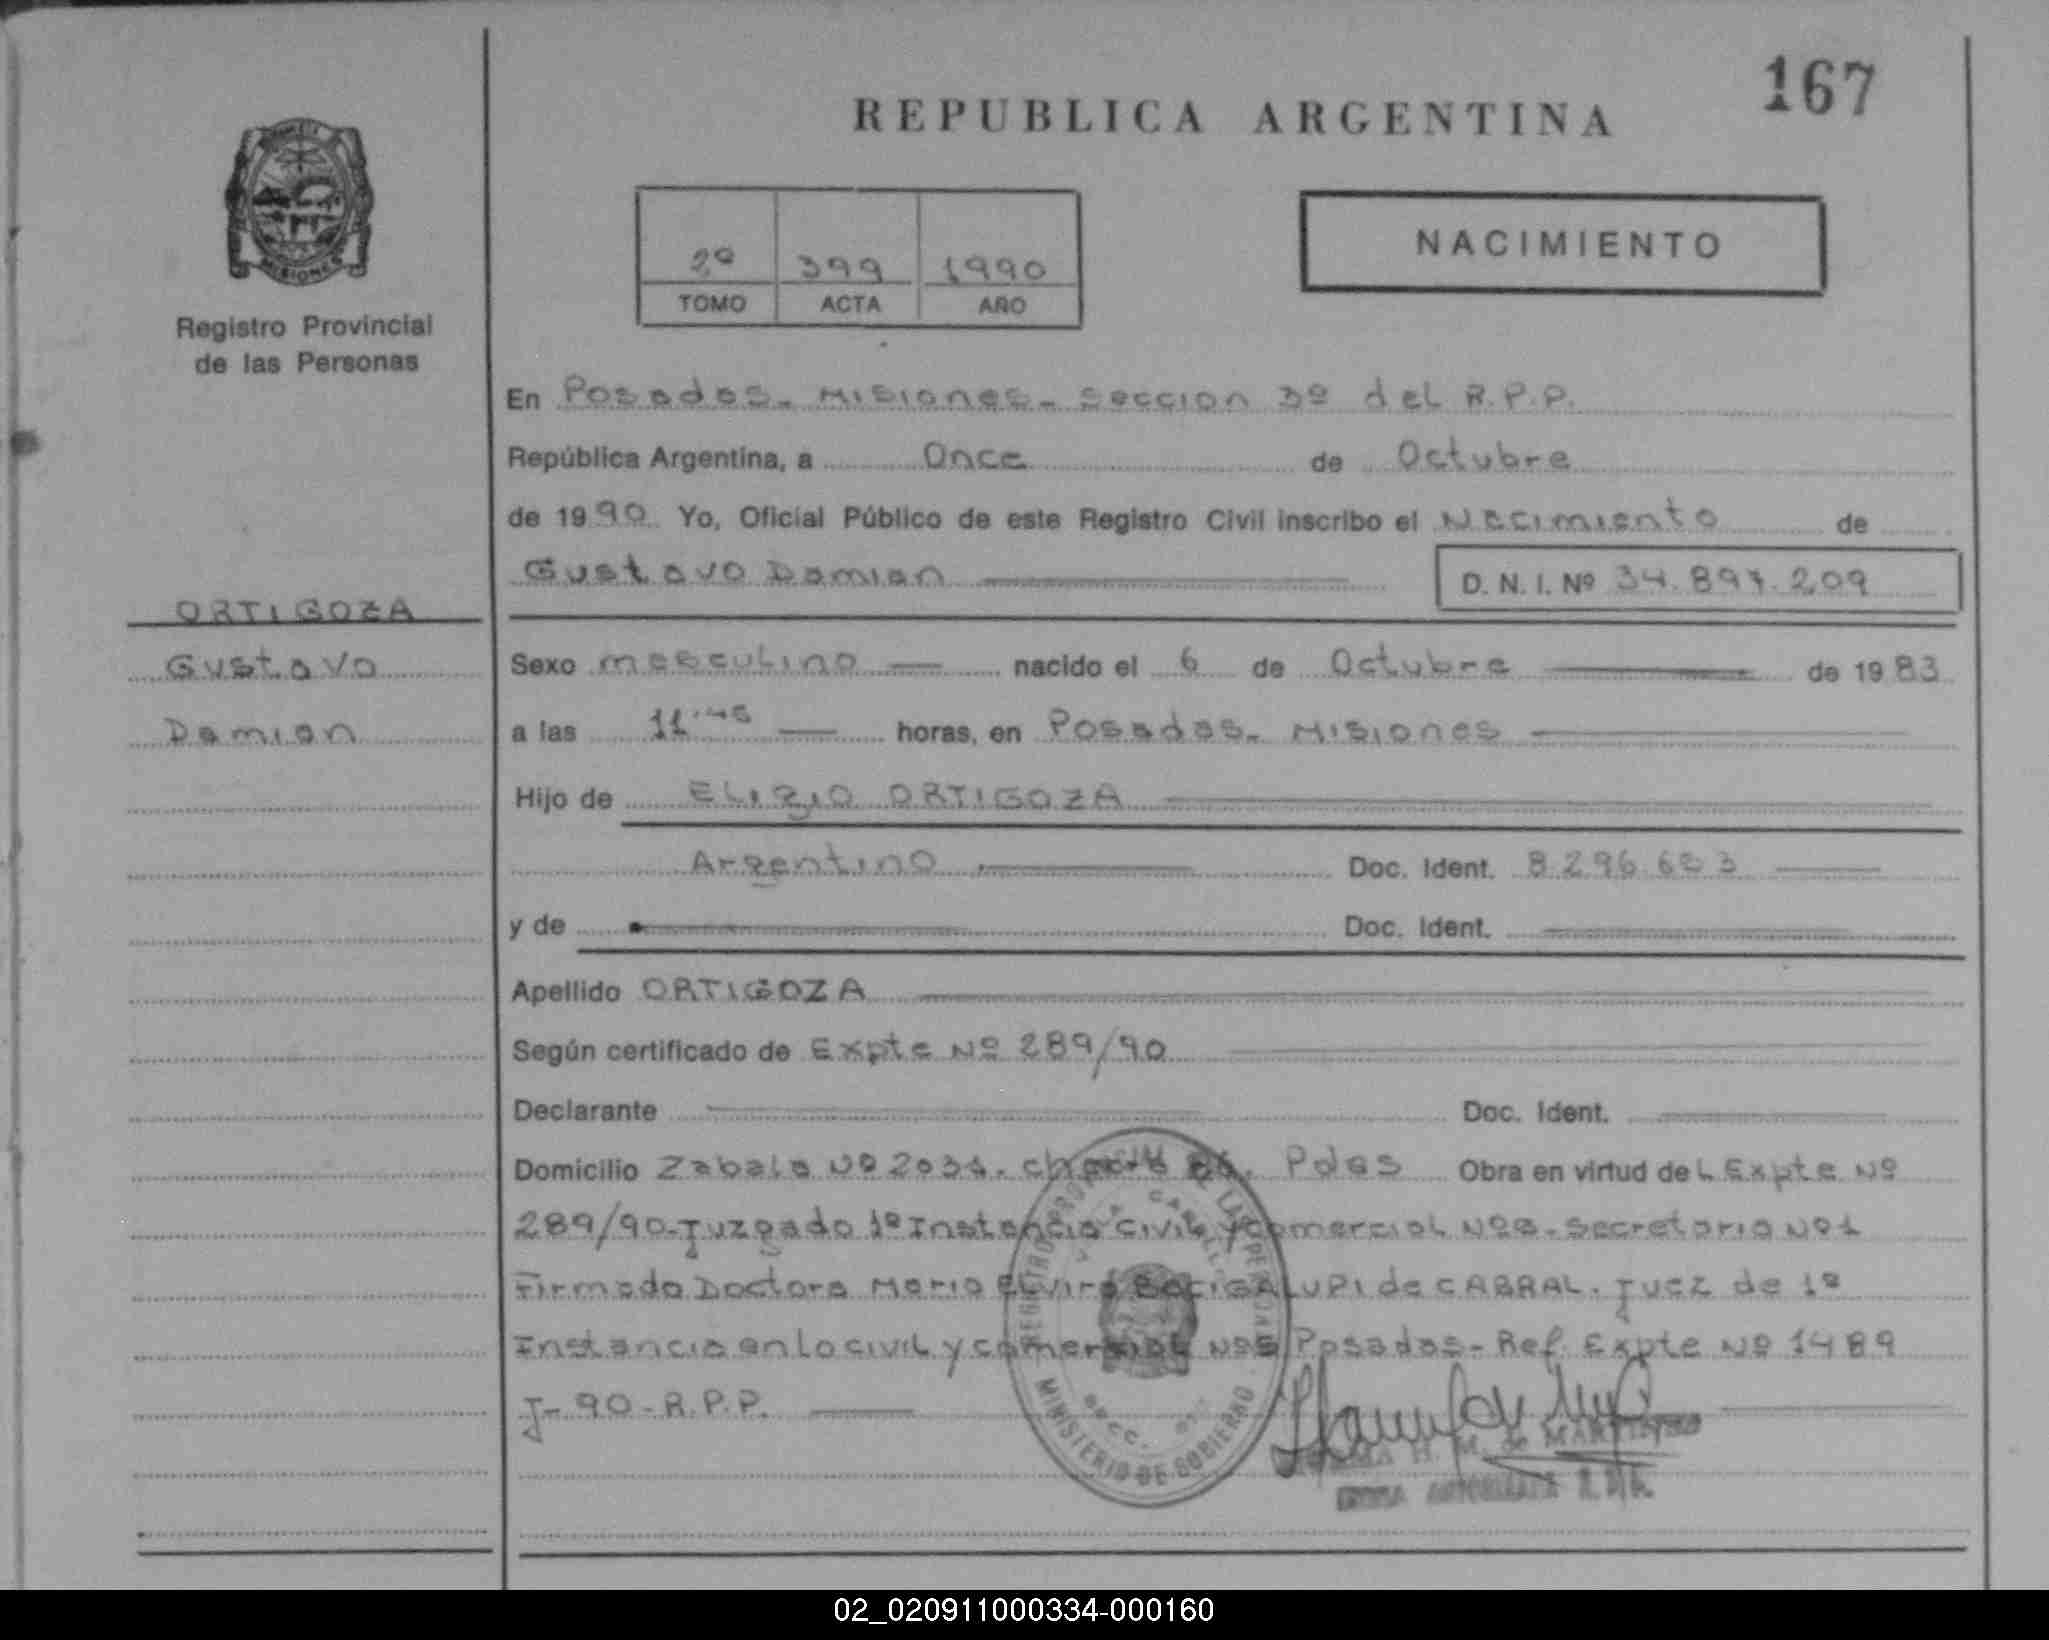 167
REPUBLICA ARGENTINA
2º 399 1990
TOMO ACTA AÑO
NACIMIENTO
MISIONES
Registro Provincial
de las Personas
En Posadas - Misiones - Seccion 3º del R.P.P.
República Argentina, a Once de Octubre
de 1990 Yo, Oficial Público de este Registro Civil inscribo el Nacimiento de
Gustavo Damian D. N. I. Nº 34.897.209
ORTIGOZA
Gustavo
Damian
Sexo masculino nacido el 6 de Octubre de 1983
a las 11'45 horas, en Posadas - Misiones
Hijo de ELIZIO ORTIGOZA
Argentino Doc. Ident. 8.296.683
y de Doc. Ident.
Apellido ORTIGOZA
Según certificado de Expte Nº 289/90
Declarante Doc. Ident.
Domicilio Zabala Nº 2031. chacra Pdas Obra en virtud del Expte Nº
289/90-Juzgado 1º Instancia civil y comercial Nº - Secretaria Nº1
Firmado Doctora Maria Elvira BACIGALUPI de CABRAL. Juez de 1º
Instancia en lo civil y comercial Nº Posadas - Ref. Expte Nº 1489
J- 90 - R.P.P.
MINISTERIO DE GOBIERNO
H. M. de
02_020911000334-000160